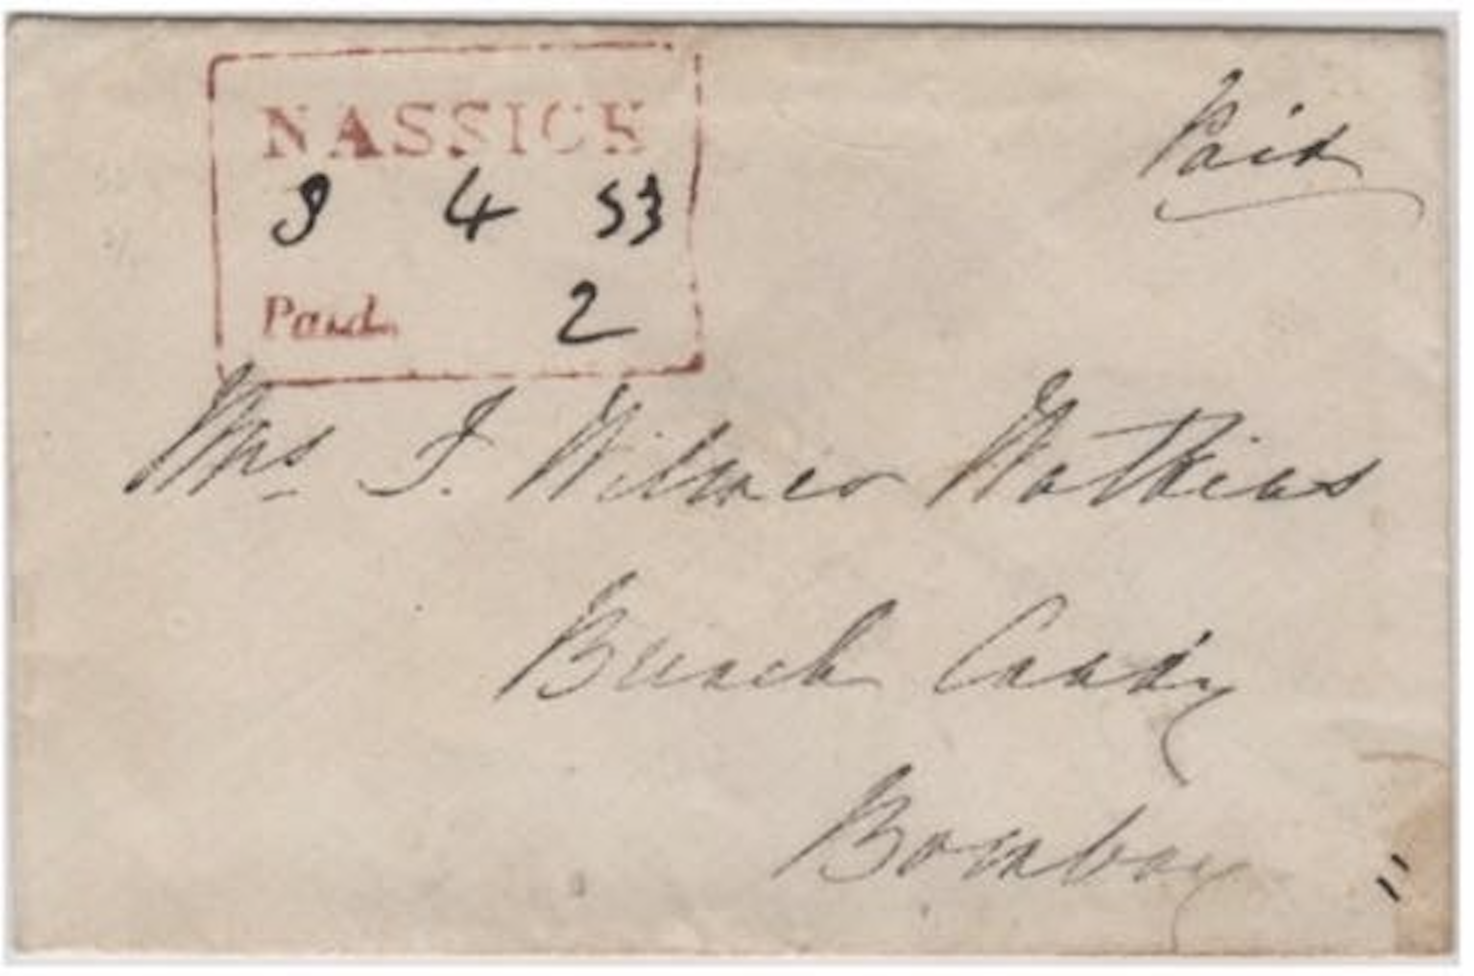 NASSICK
Paid
8 4 53
Paid. 2
Mrs J. Wilmer Watkins
Breach Candy
Bombay